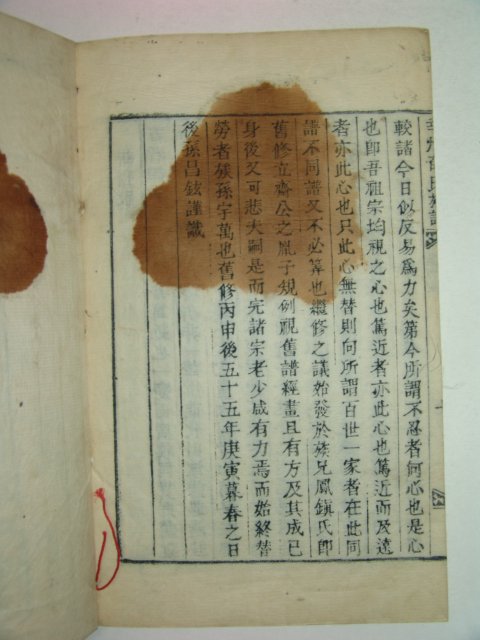 較諸今日似反易爲力矣第今所謂不忍者何心也是心
也卽吾祖宗均視之心也篤近者亦此心也篤近而及遠
者亦此心也只此心無替則向所謂百世一家者在此同
譜不同譜又不必算也繼修之議始發於族兄鳳鎭氏卽
舊修立齋公之胤子規例視舊譜經畫且有方及其成已
身後又可悲夫嗣是而完諸宗老少咸有力焉而始終替
勞者族孫宇萬也舊修丙申後五十五年庚寅暮春之日
後孫昌鉉謹識